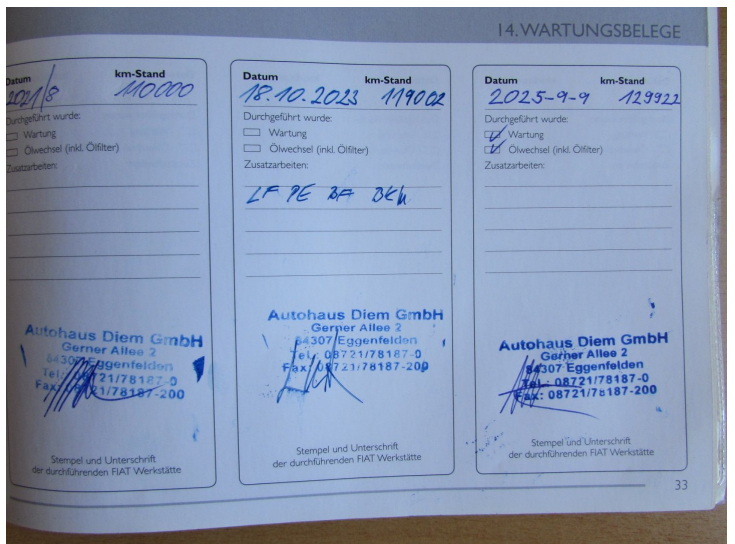 14. WARTUNGSBELEGE
Datum km-Stand
2021/8 110000
Durchgeführt wurde:
Wartung
Ölwechsel (inkl. Ölfilter)
Zusatzarbeiten:
Autohaus Diem GmbH
Gerner Allee 2
84307 Eggenfelden
Tel.: 08721/78187-0
Fax: 08721/78187-200
Stempel und Unterschrift
der durchführenden FIAT Werkstätte
Datum km-Stand
18.10.2023 119002
Durchgeführt wurde:
Wartung
Ölwechsel (inkl. Ölfilter)
Zusatzarbeiten:
LF PE BF
Autohaus Diem GmbH
Gerner Allee 2
84307 Eggenfelden
Tel.: 08721/78187-0
Fax: 08721/78187-200
Stempel und Unterschrift
der durchführenden FIAT Werkstätte
Datum km-Stand
2025-9-9 129922
Durchgeführt wurde:
Wartung
Ölwechsel (inkl. Ölfilter)
Zusatzarbeiten:
Autohaus Diem GmbH
Gerner Allee 2
84307 Eggenfelden
Tel.: 08721/78187-0
Fax: 08721/78187-200
Stempel und Unterschrift
der durchführenden FIAT Werkstätte
33